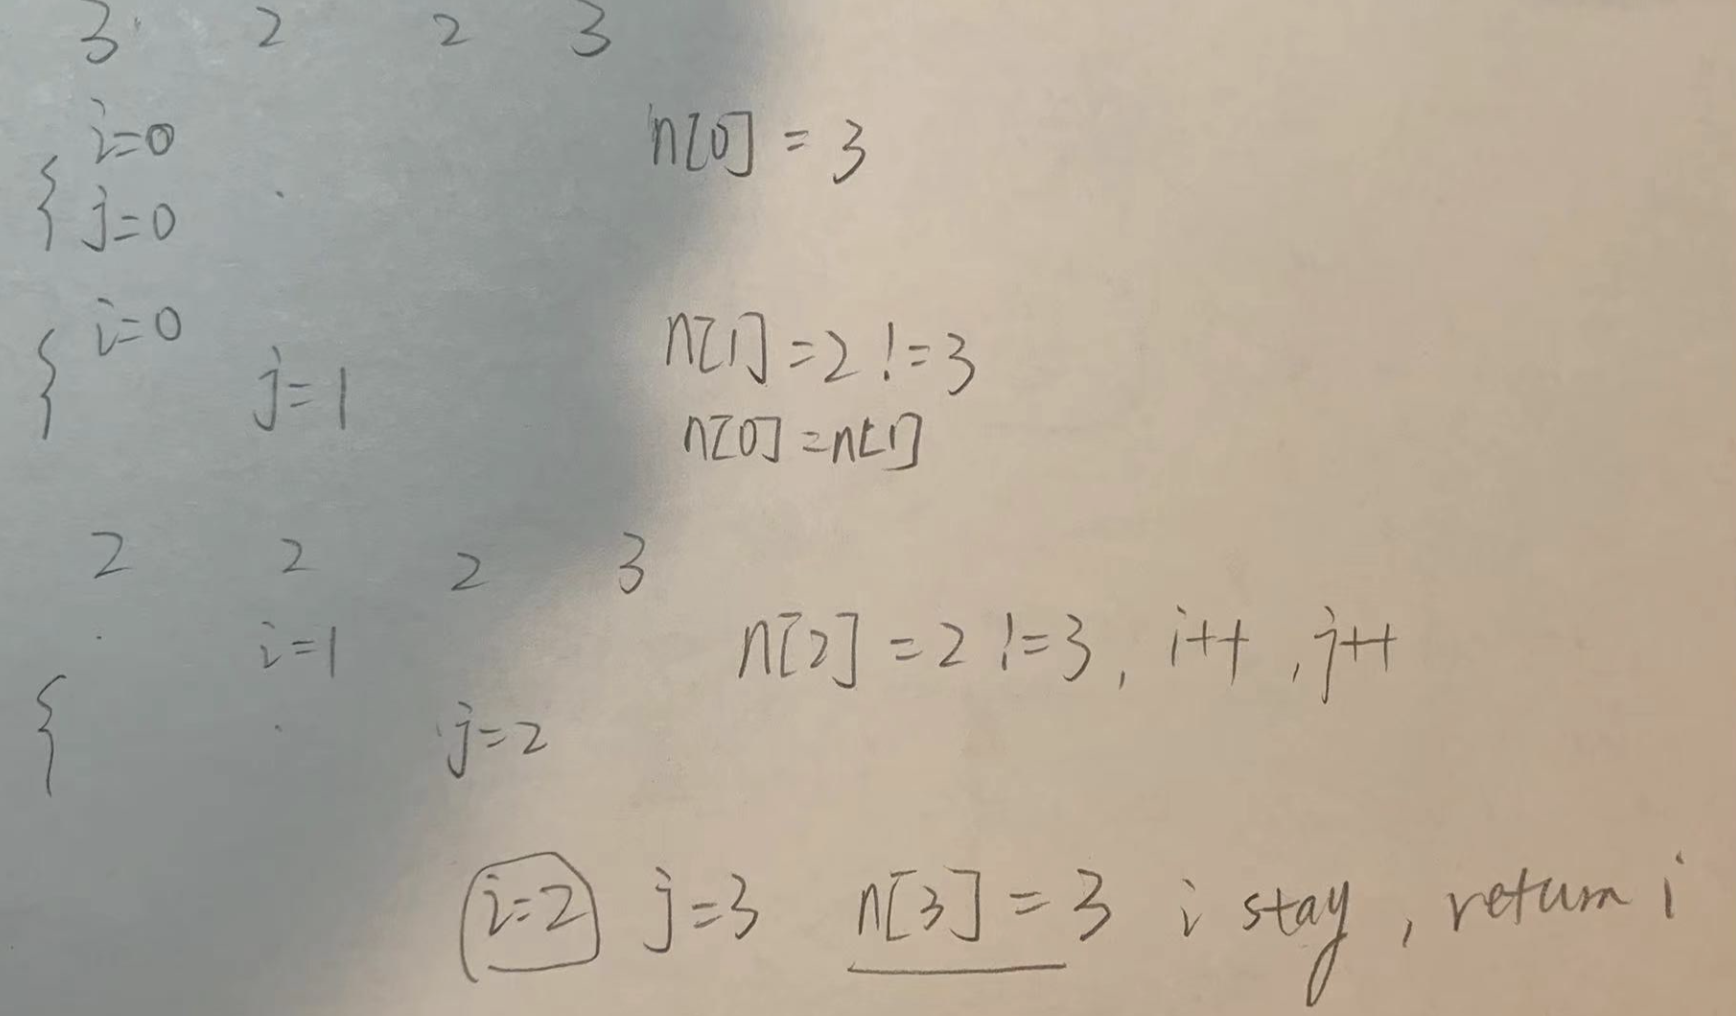 3 2 2 3
i=0
n[0] = 3
{ j=0
i=0
n[1] = 2 != 3
{ j=1
n[0] = n[1]
2 2 2 3
i=1
n[2] = 2 != 3, i++, j++
{ j=2
i=2 j=3 n[3] = 3 i stay, return i